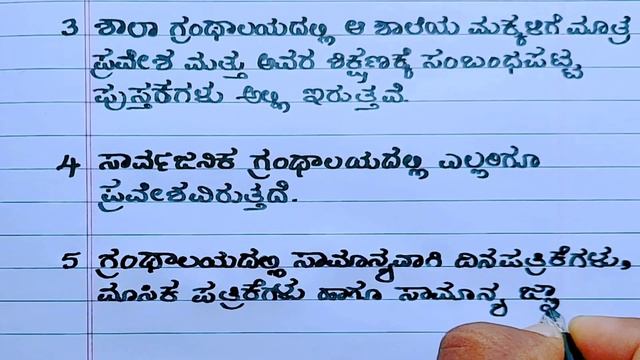 3 ಶಾಲಾ ಗ್ರಂಥಾಲಯದಲ್ಲಿ ಆ ಶಾಲೆಯ ಮಕ್ಕಳಿಗೆ ಮಾತ್ರ
ಪ್ರವೇಶ ಮತ್ತು ಅವರ ಶಿಕ್ಷಣಕ್ಕೆ ಸಂಬಂಧಪಟ್ಟ
ಪುಸ್ತಕಗಳು ಅಲ್ಲಿ ಇರುತ್ತವೆ.
4 ಸಾರ್ವಜನಿಕ ಗ್ರಂಥಾಲಯದಲ್ಲಿ ಎಲ್ಲರಿಗೂ
ಪ್ರವೇಶವಿರುತ್ತದೆ.
5 ಗ್ರಂಥಾಲಯದಲ್ಲಿ ಸಾಮಾನ್ಯವಾಗಿ ದಿನಪತ್ರಿಕೆಗಳು,
ಮಾಸಿಕ ಪತ್ರಿಕೆಗಳು ಹಾಗೂ ಸಾಮಾನ್ಯ ಜ್ಞಾ